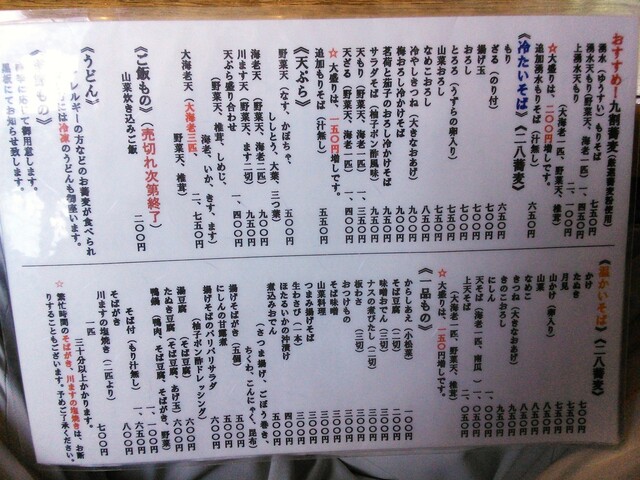 おすすめ！九割蕎麦
湧水（ゆうすい）もりそば 七五〇円
湧水天もり（野菜天、海老一匹） 一、四〇〇円
上湧水天もり
（大海老一匹、野菜天、椎茸）
☆大盛りは、二〇〇円増しです。
追加湧水もりそば（汁無し） 六五〇円
《冷たいそば》（二八蕎麦）
もり 六五〇円
ざる（のり付） 七〇〇円
揚げ玉 七〇〇円
おろし
とろろ（うずらの卵入り）
山菜おろし
なめこおろし 八五〇円
冷やしきつね（大きなおあげ） 九〇〇円
梅おろし冷かけそば 九〇〇円
茗荷と茄子のおろし冷かけそば 九五〇円
サラダそば（柚子ポン酢風味） 九五〇円
天もり（野菜天、海老一匹） 一、三五〇円
天ざる（野菜天、海老一匹） 一、四〇〇円
☆大盛りは、一五〇円増しです。
追加もりそば（汁無し） 五五〇円
《天ぷら》
野菜天（なす、かぼちゃ、
ししとう、大葉、三つ葉） 五〇〇円
海老天（野菜天、海老二匹） 九〇〇円
川ます天（野菜天、ます二切） 九五〇円
天ぷら盛り合わせ 一、四〇〇円
（野菜天、椎茸、しめじ、
海老、いか、きす、ます）
大海老天（大海老三匹、 一、七五〇円
野菜天、椎茸）
《ご飯もの》（売切れ次第終了）
山菜炊き込みご飯 二〇〇円
《うどん》
レルギーの方などのお蕎麦が食べられ
には冷凍のうどんも御座います。
に応じて御用意します。
黒板にてお知らせ致します。
《温かいそば》（二八蕎麦）
かけ 七〇〇円
たぬき 七五〇円
月見 七五〇円
山かけ（卵入り） 八五〇円
山菜 八五〇円
なめこ 八五〇円
きつね（大きなおあげ） 九五〇円
きのこおろし 九五〇円
にしん
天そば（海老一匹、南瓜）
上天そば
（大海老一匹、野菜天、椎茸）
☆大盛りは、一五〇円増しです。
《一品もの》
からしあえ（小松菜） 一〇〇円
そば豆腐（二切） 二〇〇円
味噌おでん（三切） 二〇〇円
ナスの煮びたし（二切） 二〇〇円
板わさ（三切） 三〇〇円
おつけもの 三〇〇円
そば味噌 三〇〇円
山菜料理 三〇〇円
つまみ揚げそば 三〇〇円
生わさび（一本） 三〇〇円
ほたるいかの沖漬け 四〇〇円
煮込みおでん 五〇〇円
（さつま揚げ、ごぼう巻き、
ちくわ、こんにゃく、昆布）
揚げそばがき（五個） 五〇〇円
にしんの甘露煮 五〇〇円
揚げそばのパリパリサラダ 五〇〇円
（柚子ポン酢ドレッシング）
湯豆腐（そば豆腐） 六〇〇円
たぬき豆腐（そば豆腐、あげ玉） 六〇〇円
鴨鍋（鴨肉、そば豆腐、そばがき、野菜）
一、一〇〇円
そば付（もり汁無し） 一、六五〇円
そばがき 八〇〇円
川ますの塩焼き（二匹より）
一匹 七〇〇円
三十分以上かかります。
☆繁忙時間のそばがき、川ますの塩焼きは、お断
りすることもございます。予めご了承ください。